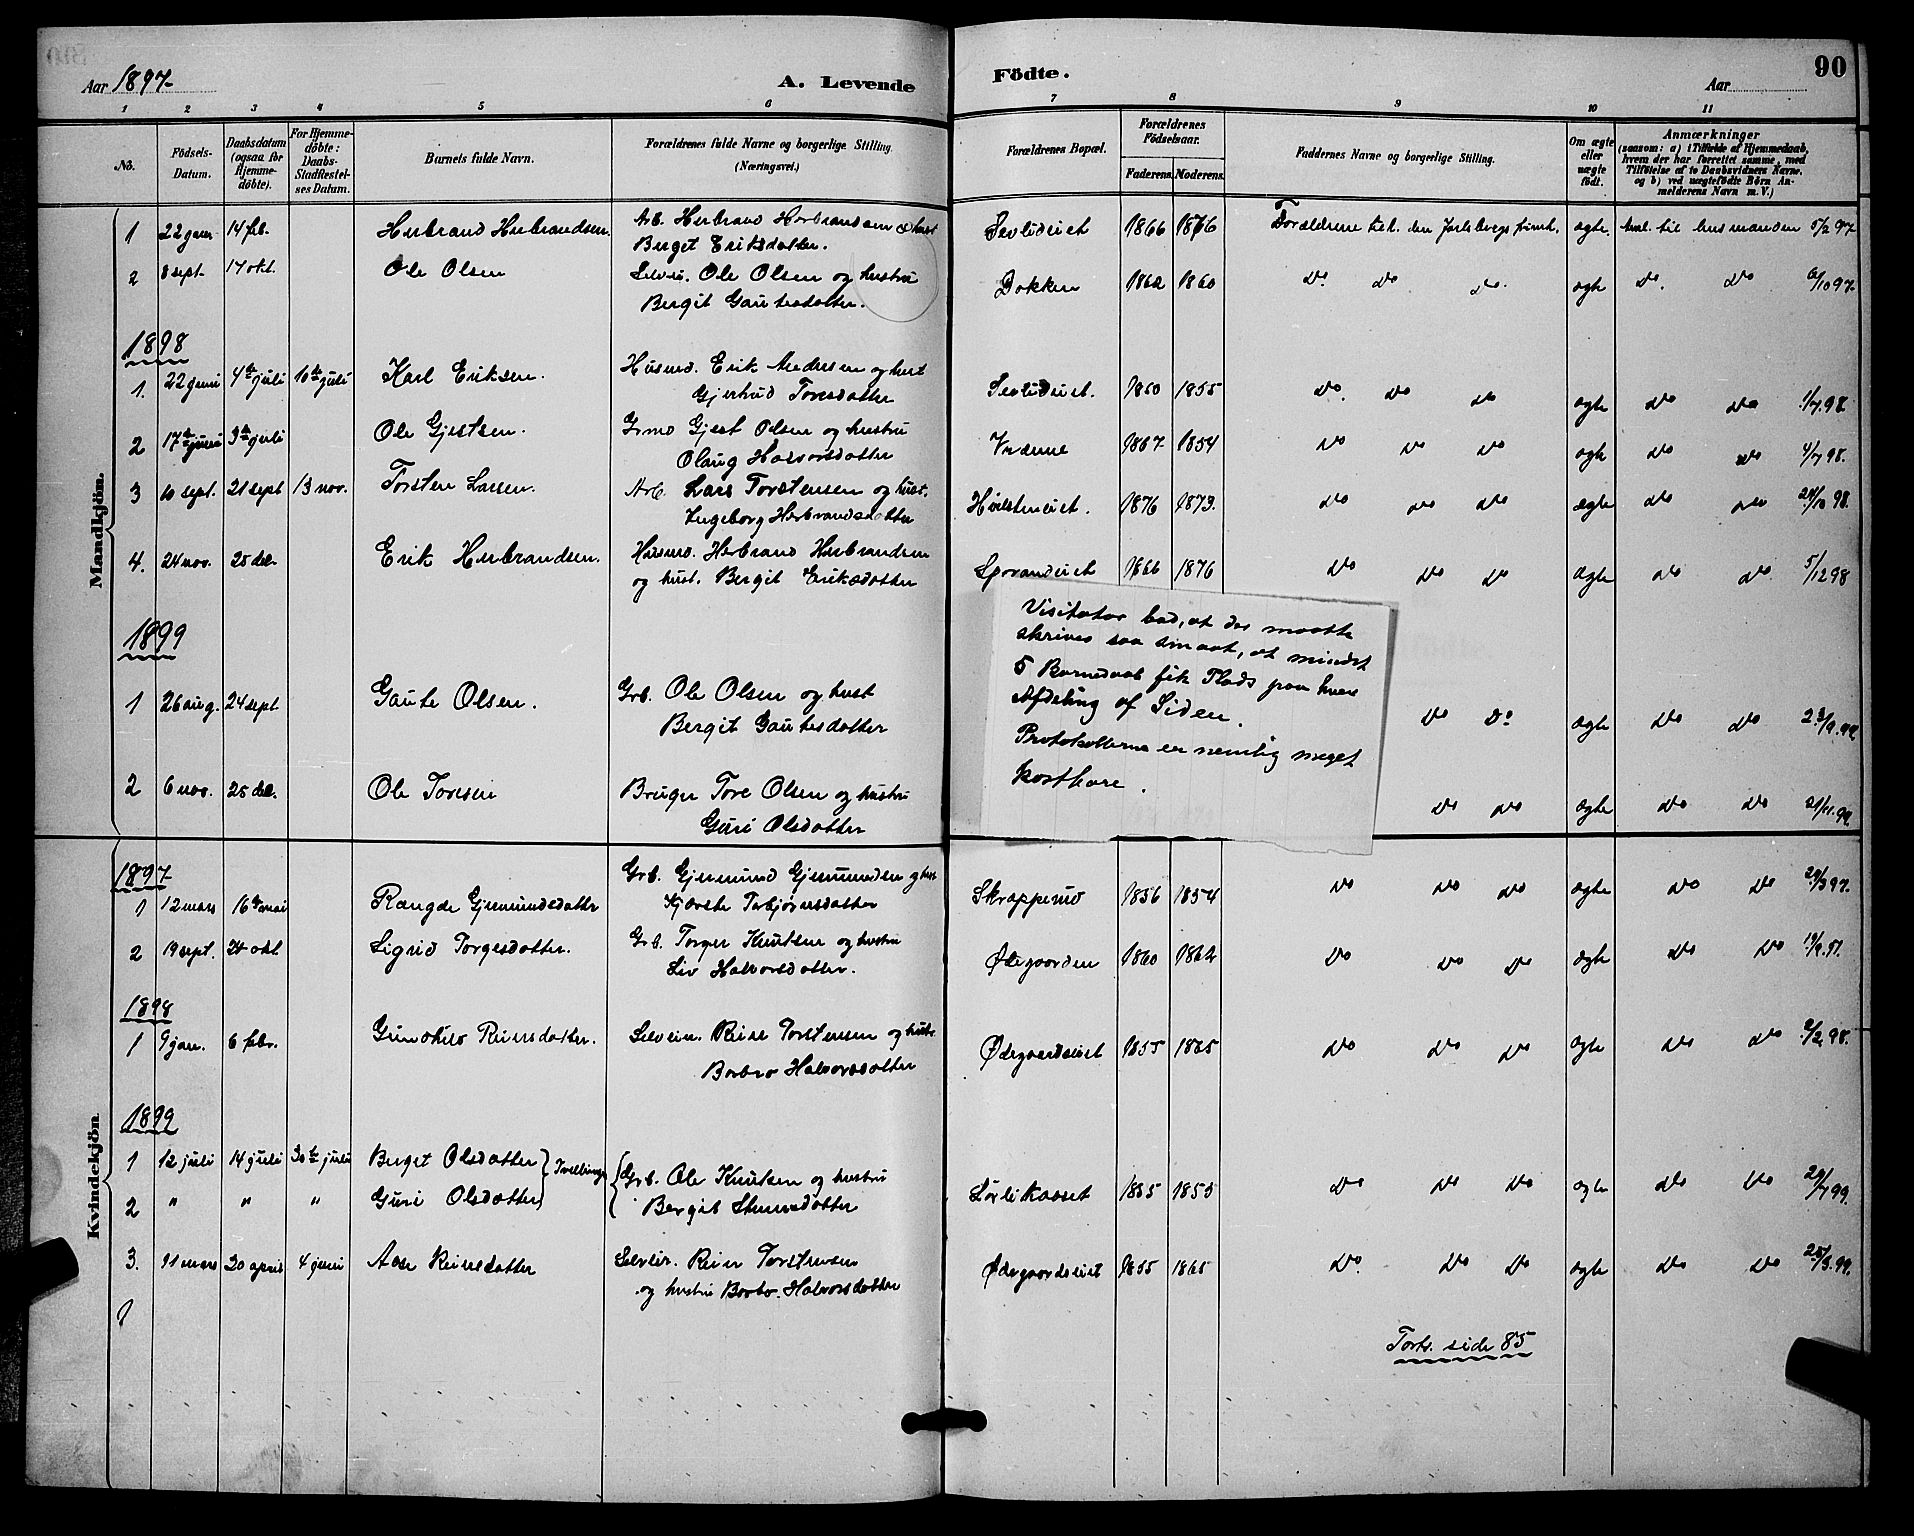 Aar 1897.
A. Levende
Födte.
Aar
90
1 2 3 4 5 6 7 8 9 10 11
No.
Födsels-Datum.
Daabsdatum (ogsaa for Hjemmedöbte).
For Hjemmedöbte: Daabs-Stadfæstelses Datum.
Barnets fulde Navn.
Forældrenes fulde Navne og borgerlige Stilling.
(Næringsvei.)
Forældrenes Bopæl.
Forældrenes Födselsaar.
Faderens. Moderens.
Faddernes Navne og borgerlige Stilling.
Om ægte eller uægte födt.
Anmærkninger
(saasom: a) i Tilfælde af Hjemmedaab, hvem der har forrettet samme, med Tilföielse af to Daabsvidners Navne, og b) ved uægtefödte Börn Anmelderens Navn m. V.)
Mandkjön.
1 22 14 feb. Herbrand Herbrandsen. Arb. Herbrand Herbrandsen
Berget Eriksdatter. 1866 1876 Forældrene ægte. 5/2 97
2 8 sept. 17 okt. Ole Olsen Ole Olsen og hustru
Bergit Gautesdatter. Dokken 1862 1860 Do. Do. Do. ægte Do. Do. 6/10 97
1898
1. 22 juni 4de juli 10de juli Karl Eriksen. Husmd. Erik Andresen og hust
Gjertrud Toresdatter 1850 1855 Do. Do Do ægte Do Do 1/7 98.
2 17de juni 3de juli Ole Gjestsen. Gjest Olsen og hustru
Olaug Halvorsdatter 1867 1854 Do Do Do ægte Do Do 4/7 98.
3 10 sept. 21 sept 13 nov. Torsten Larsen. Arb. Lars Torstensen og hust.
Ingeborg Herbrandsdatter 1876 1873. Do Do Do ægte Do Do 24/10 98.
4. 24 nov. 25 dec Erik Herbrandsen. Husmd. Herbrand Herbrandsen
og hust. Bergit Eriksdatter 1866 1876 Do Do Do ægte Do Do. 5/12 98
1899
1 26 aug. 24 sept Gaute Olsen. Grb. Ole Olsen og hust
Bergit Gautesdatter Do Do ægte Do Do 23/9.99.
2 6 nov. 25 dec. Ole Toresen Bruger Tore Olsen og hustru
Guri Olsdatter Do Do ægte Do Do 21/11.99.
Visitator bad, at der maatte
skrives saa smaat, at mindst
5 Barnedaab fik Plads paa hver
Afdeling af Siden.
Protokollerne er nemlig meget
kostbare.
Kvindekjön.
1897
1 12 mars 16de mai Rangde Gjermundsdatter Grb. Gjermund Gjermundsen og hust
Torbjørnsdatter Skrappemo 1856 1854 Do Do Do ægte Do Do 97.
2 19 sept. 24 okt. Sigrid Torgersdatter. Grb. Torger Knutsen og hustru
Liv Halvorsdatter. Ødegaarden 1860 1862 Do Do Do ægte Do Do
1898
1 9 jan. 6 febr. Gunohild Reiersdatter. Selveier. Reier Torstensen og hustr.
Borbro Halvorsdatter Ødegaardseiet 1855 1865 Do Do Do ægte Do Do 2/2.98.
1899
1 12 juli 14 juli 30te juli Berget Olsdatter Tvillinger Grb. Ole Knutsen og hustru
2 " " " Guri Olsdatter Bergit 1855 1855 Do Do Do ægte Do Do 20/7 99.
3. 11 mars 30 april 4 juni Aase Reiersdatter Selveier. Reier Torstensen
og hustru Borbr. Halvorsdatter Ødegaardseiet 1855 1865 Do. Do Do ægte Do Do 25/3.99.
1
Forts. side 85